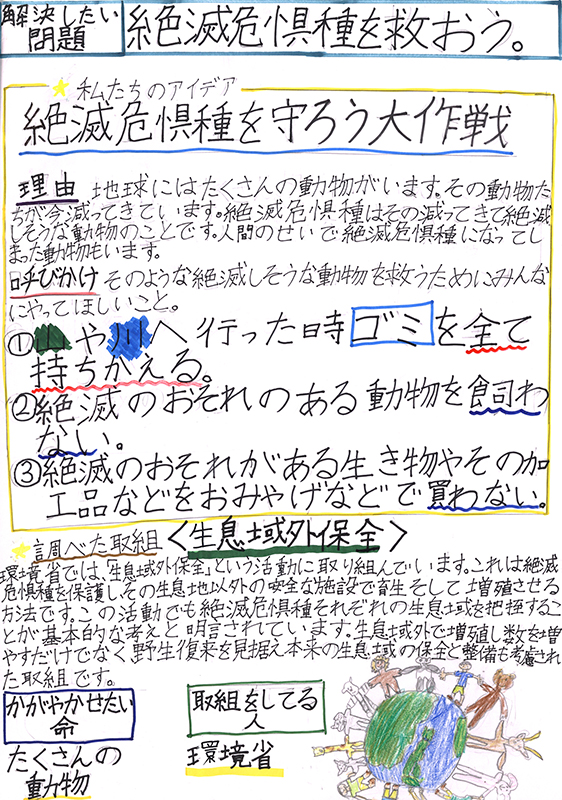 解決したい
問題
絶滅危惧種を救おう。
私たちのアイデア
絶滅危惧種を守ろう大作戦
理由 地球にはたくさんの動物がいます。その動物た
ちが今減ってきています。絶滅危惧種はその減ってきて絶滅
しそうな動物のことです。人間のせいで絶滅危惧種になってし
まった動物もいます。
呼びかけ そのような絶滅しそうな動物を救うためにみんな
にやってほしいこと。
①山や川へ行った時ゴミを全て
持ちかえる。
②絶滅のおそれのある動物を飼わ
ない。
③絶滅のおそれがある生き物やその加
工品などをおみやげなどで買わない。
調べた取組<生息域外保全>
環境省では、「生息域外保全」という活動に取り組んでいます。これは絶滅
危惧種を保護し、その生息地以外の安全な施設で育生そして増殖させる
方法です。この活動でも絶滅危惧種それぞれの生息域を把握するこ
とが基本的な考えと明言されています。生息域外で増殖し数を増
やすだけでなく野生復来を見据え本来の生息域の保全と整備も考慮され
た取組です。
かがやかせたい
命
たくさんの
動物
取組をしてる
人
環境省